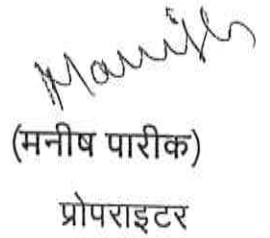 Manish
(मनीष पारीक)
प्रोपराइटर